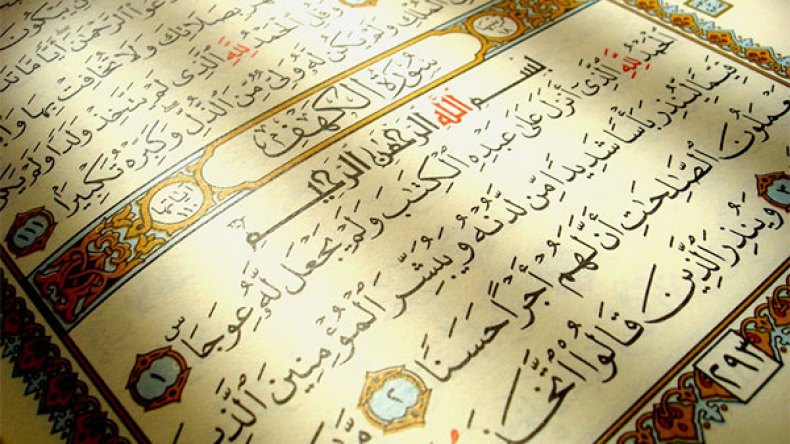 الرَّحْمَٰنَ أَيًّا مَّا
بِصَلَاتِكَ وَلَا تُخَافِتْ بِهَا
وَقُلِ الْحَمْدُ لِلَّهِ الَّذِي لَمْ يَتَّخِذْ وَلَدًا وَلَمْ يَكُن
الْمُلْكِ وَلَمْ يَكُن لَّهُ وَلِيٌّ مِّنَ الذُّلِّ وَكَبِّرْهُ تَكْبِيرًا ١١١
سُورَةُ الْكَهْفِ
بِسْمِ اللَّهِ الرَّحْمَٰنِ الرَّحِيمِ
الْحَمْدُ لِلَّهِ الَّذِي أَنزَلَ عَلَىٰ عَبْدِهِ الْكِتَٰبَ وَلَمْ يَجْعَل لَّهُ عِوَجَا س ١
قَيِّمًا لِّيُنذِرَ بَأْسًا شَدِيدًا مِّن لَّدُنْهُ وَيُبَشِّرَ الْمُؤْمِنِينَ الَّذِينَ
يَعْمَلُونَ الصَّٰلِحَٰتِ أَنَّ لَهُمْ أَجْرًا حَسَنًا ٢
٣ وَيُنذِرَ الَّذِينَ قَالُوا اتَّخَذَ
٢٩٣